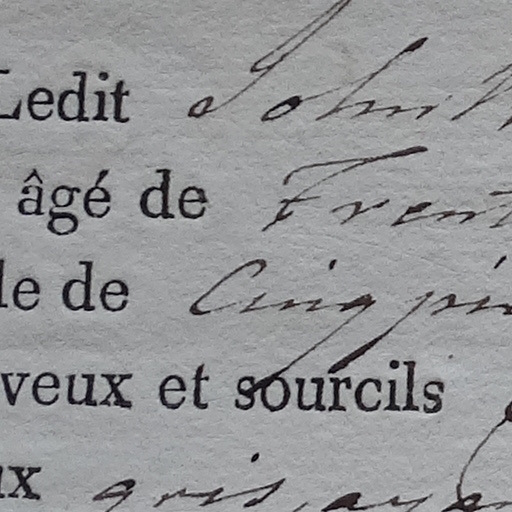 Ledit
âgé de Trent
le de Cinq pie
veux et sourcils
ux gris, aya